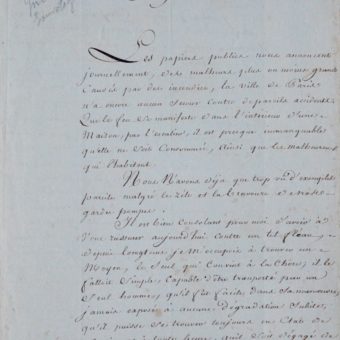 Les papiers publics nous annoncent
journellement, des malheurs plus ou moins grands
Causés par des incendies, la ville de Paris
n'a encore aucun Secour Contre de pareils accidents
Que le feu Se manifeste dans l'intérieur d'une
Maison, par l'escalier, il est presque immanquable
qu'elle ne Soit Consommée, ainsi que les malheureux
qui l'habitent.
Nous N'avons déja que trop vu d'exemples
pareils malgré le zèle et la bravoure de nos
gardes pompes.
Il est bien Consolant pour moi d'avoir à
Vous rassurer aujourd'hui Contre un tel fléau,
depuis longtems je m'occupois à trouver un
Moyen, le Seul qui Convint à la Chose, il le
falloit Simple, Capable d'être transporté par un
Seul homme, qu'il fut facile dans Sa manoeuvre,
jamais exposé à aucune dégradation Subite,
qu'il puisse Se trouver toujours en Etat de
à toute heure, qu'il Soit dégagé de